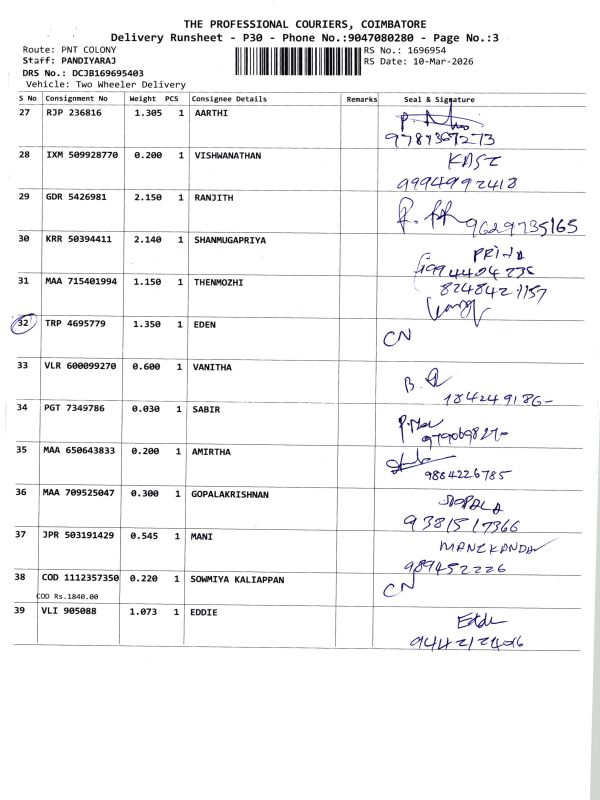 THE PROFESSIONAL COURIERS, COIMBATORE
Delivery Runsheet - P30 - Phone No.:9047080280 - Page No.:3
Route: PNT COLONY
Staff: PANDIYARAJ
DRS No.: DCJB169695403
Vehicle: Two Wheeler Delivery
RS No.: 1696954
RS Date: 10-Mar-2026
S No Consignment No Weight PCS Consignee Details Remarks Seal & Signature
27 RJP 236816 1.305 1 AARTHI
28 IXM 509928770 0.200 1 VISHWANATHAN
9994992418
29 GDR 5426981 2.150 1 RANJITH
9629735165
30 KRR 50394411 2.140 1 SHANMUGAPRIYA
PRIYA
31 MAA 715401994 1.150 1 THENMOZHI
32 TRP 4695779 1.350 1 EDEN
CN
33 VLR 600099270 0.600 1 VANITHA
34 PGT 7349786 0.030 1 SABIR
35 MAA 650643833 0.200 1 AMIRTHA
9884226785
36 MAA 709525047 0.300 1 GOPALAKRISHNAN
GOPALA
9381517366
37 JPR 503191429 0.545 1 MANI
MANIKANDAN
989452226
38 COD 1112357350 0.220 1 SOWMIYA KALIAPPAN CN
COD Rs.1840.00
39 VLI 905088 1.073 1 EDDIE